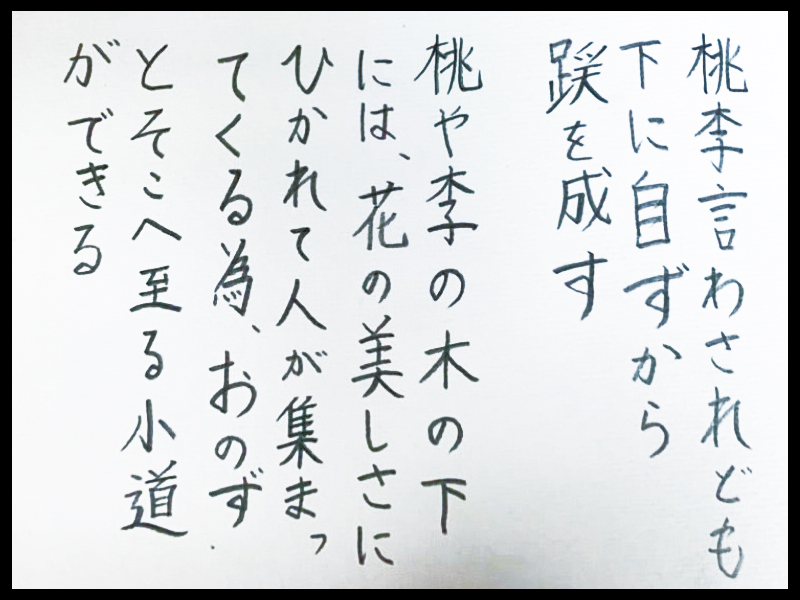 桃李言わされども
下に自ずから
蹊を成す
桃や李の木の下
には、花の美しさに
ひかれて人が集まっ
てくる為、おのず
とそこへ至る小道
ができる